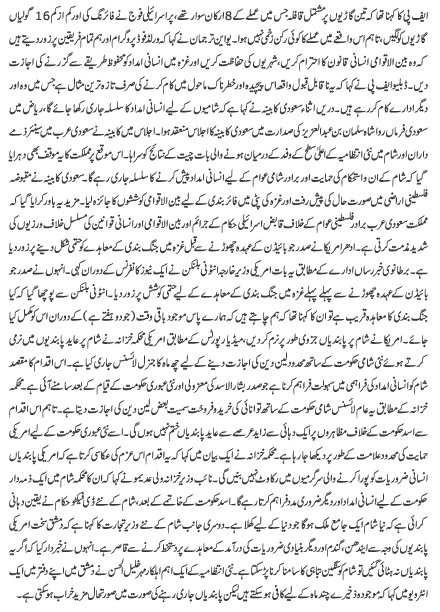 ایف پی کا کہنا تھا کہ تین گاڑیوں پر مشتمل قافلہ جس میں عملے کے 8 ارکان سوار تھے، پر اسرائیلی فوج نے فائرنگ کی اور کم از کم 16 گولیاں
گاڑیوں کو لگیں، تاہم اس واقعے میں عملے کا کوئی رکن زخمی نہیں ہوا۔ یو این ترجمان نے کہا کہ ورلڈ فوڈ پروگرام اور ہم تمام فریقین پر زور دیتے ہیں
کہ وہ بین الاقوامی انسانی قانون کا احترام کریں، شہریوں کی حفاظت کریں اور غزہ میں انسانی امداد کو محفوظ طریقے سے گزرنے دیں۔
ڈبلیو ایف پی نے کہا کہ یہ ناقابل قبول واقعہ اس پیچیدہ اور خطرناک ماحول میں کام کرنے کی صرف تازہ ترین مثال ہے جس میں وہ اور
دیگر ادارے کام کر رہے ہیں۔ دریں اثناء سعودی کابینہ نے کہا ہے کہ شامیوں کے لیے انسانی امداد کا سلسلہ جاری رکھا جائے گا، ریاض میں
سعودی فرماں روا شاہ سلمان بن عبدالعزیز کی صدارت میں سعودی کابینہ کا اجلاس منعقد ہوا۔ اجلاس میں کابینہ نے سعودی عرب میں سینئر ذمے
داران اور شام میں نئی انتظامیہ کے اعلیٰ سطح کے وفد کے درمیان ہونے والی بات چیت کے نتائج کو سراہا۔ اس موقع پر مملکت کا یہ موقف بھی دہرایا
گیا کہ شام کے امن و استحکام کی حمایت اور برادر شامی عوام کے لیے انسانی امداد پیش کرنے کا سلسلہ جاری رہے گا۔ سعودی کابینہ نے مقبوضہ
فلسطینی اراضی میں صورت حال کی پیش رفت اور غزہ کی پٹی میں فائر بندی کے لیے بین الاقوامی کوششوں کا جائزہ لیا۔ مزید یہ باور کرایا گیا کہ
مملکت سعودی عرب برادر فلسطینی عوام کے خلاف قابض اسرائیلی حکام کے جرائم اور بین الاقوامی اور انسانی قوانین کی مسلسل خلاف ورزیوں کی
شدید مذمت کرتی ہے۔ ادھر امریکا نے صدر جو بائیڈن کے عہدہ چھوڑنے سے قبل غزہ میں جنگ بندی کے معاہدے کو حتمی شکل دینے پر زور دیا
ہے۔ برطانوی خبر رساں ادارے کے مطابق یہ بات امریکی وزیر خارجہ انٹونی بلنکن نے ایک نیوز کانفرنس کے دوران کہی۔ انہوں نے صدر جو
بائیڈن کے عہدہ چھوڑنے سے پہلے پہلے غزہ میں جنگ بندی کے معاہدے کے لیے حتمی کوشش پر زور دیا۔ انٹونی بلنکن سے پوچھا گیا کہ کیا
جنگ بندی کا معاہدہ قریب ہے تو ان کا کہنا تھا کہ ہم چاہتے ہیں کہ ہمارے پاس موجود باقی وقت (جو دو ہفتے ہے) کے دوران اس کو مکمل کیا
جائے۔ امریکا نے شام پر پابندیاں جزوی طور پر نرم کر دیں، میڈیا رپورٹس کے مطابق امریکی محکمہ خزانہ نے شام پر عاید پابندیوں میں نرمی
کرتے ہوئے نئی شامی حکومت کے ساتھ محدود لین دین کی اجازت دینے کے لیے چھ ماہ کا جنرل لائسنس جاری کیا ہے۔ اس اقدام کا مقصد
شام کو انسانی امداد کی فراہمی میں سہولت فراہم کرنا ہے جو صدر بشار الاسد کی معزولی اور نئی عبوری حکومت کے قیام کے بعد سامنے آئی ہے۔ محکمہ
خزانہ کے مطابق یہ عام لائسنس شامی حکومت کے ساتھ توانائی کی خرید و فروخت سمیت بعض لین دین کی اجازت دیتا ہے۔ تاہم اس اقدام
سے اسد حکومت کے خلاف مظاہروں پر ایک دہائی سے زاید عرصے سے عاید پابندیاں ختم نہیں ہوں گی۔ اسے نئی عبوری حکومت کے لیے امریکی
حمایت کی محدود علامت کے طور پر دیکھا جا رہا ہے۔ امریکی محکمہ خزانہ نے ایک بیان میں کہا کہ یہ اقدام اس عزم کی عکاسی کرتا ہے کہ امریکی پابندیاں
بنیادی ضروریات کو پورا کرنے والی سرگرمیوں میں رکاوٹ نہیں بنیں گی۔ نائب وزیر خزانہ ولی عدیمو نے کہا کہ ان کا محکمہ شام میں ایک ذمہ دار
حکومت کے لیے انسانی امداد اور دیگر ضروری مدد فراہم کرتا رہے گا۔ اسد حکومت کے خاتمے کے بعد، شام کے نئے ڈی فیکٹو حکام نے یقین دہانی
کرائی ہے کہ نیا شام ایک جامع ملک ہوگا جو دنیا کے لیے کھلا ہے۔ دوسری جانب شام کے نئے وزیر تجارت کا کہنا ہے کہ دمشق سخت امریکی
پابندیوں کی وجہ سے ایندھن، گندم اور دیگر بنیادی ضروریات کی درآمد کے معاہدے پر دستخط کرنے سے قاصر ہے۔ انہوں نے خبردار کیا کہ اگر یہ
پابندیاں نہ ہٹائی گئیں تو شام کو سنگین تباہی کا سامنا کرنا پڑ سکتا ہے۔ نئی انتظامیہ کے ایک اہم اہلکار مہر خلیل الحسن نے دمشق میں اپنے دفتر میں ایک
انٹرویو میں کہا کہ موجودہ ذخیرے چند ماہ کے لیے کافی ہو سکتے ہیں لیکن پابندیاں جاری رہنے کی صورت میں صورتحال مزید خراب ہو سکتی ہے۔